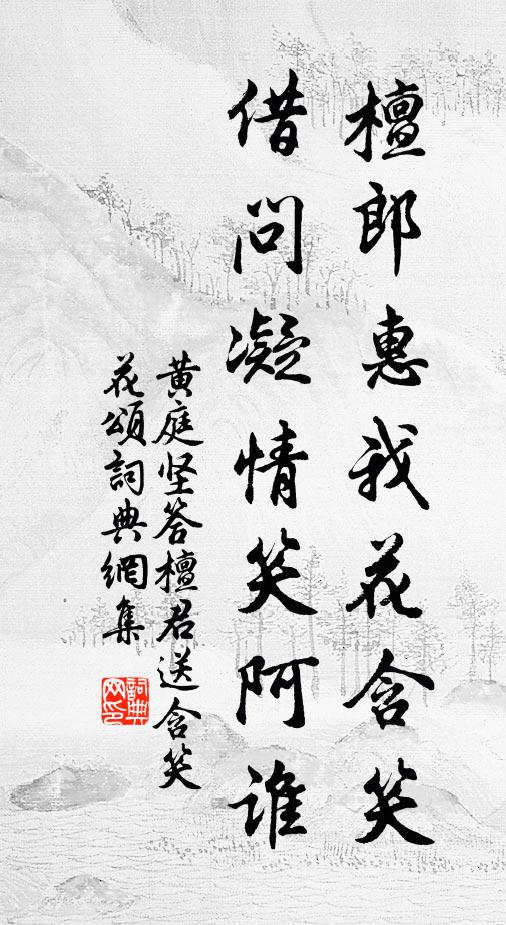 檀郎惠我花含笑
借问凝情笑阿谁
黄庭坚答檀君送含笑
花颂詞典網集
詞典
网印